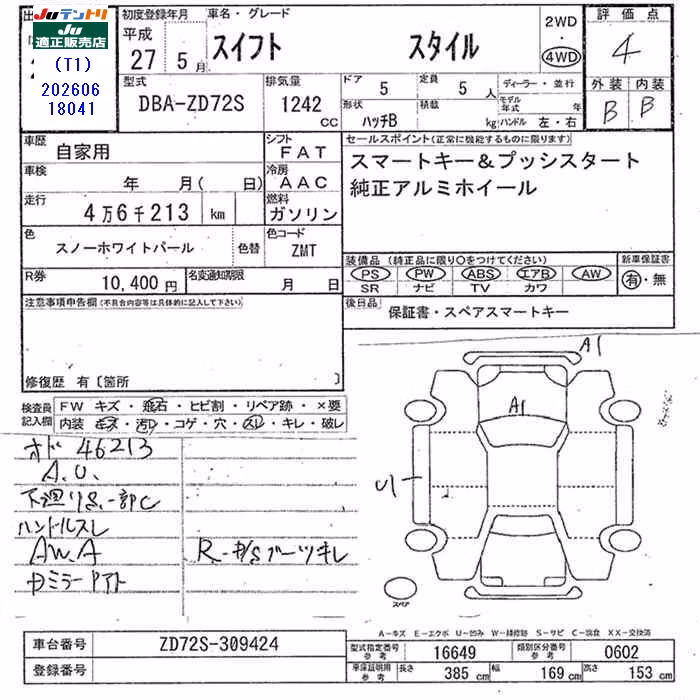 出
JUテントリ
JU
適正販売店
(T1)
202606
18041
初度登録年月
平成
27 5月
車名・グレード
スイフト スタイル
2WD
・
4WD
評価点
4
型式
DBA-ZD72S
排気量
1242
CC
ドア 5
定員 5 人
ディーラー・並行
モデル年式 年
形状 ハッチB
積載 kg
ハンドル 左・右
外装 内装
B B
車歴 自家用
シフト FAT
セールスポイント(正常に機能するものに限ります)
スマートキー&プッシスタート
純正アルミホイール
車検 年 月( 日)
冷房 AAC
走行 4万6千213 km
燃料 ガソリン
色 スノーホワイトパール 色替
色コード ZMT
装備品(純正品に限り○をつけてください)
PS PW ABS エアB AW
SR ナビ TV カワ
新車保証書
有・無
R券 10,400円
名変通知期限 月 日
注意事項申告欄(不具合内容等は具体的に記入して下さい)
後日品 保証書・スペアスマートキー
修復歴 有〔箇所
検査員記入欄
FW キズ・飛石・ヒビ割・リペア跡・×要
内装 キズ・汚れ・コゲ・穴・スレ・キレ・破レ
A1
A1
U1
オド 46213
A.U.
ハンドルスレ
AW.A
スペア
A-キズ E-エクボ U-凹み W-補修跡 S-サビ C-腐食 XX-交換済
車台番号 ZD72S-309424
登録番号
型式指定番号 参考 16649
類別区分番号 参考 0602
車庫証明用 参考
長さ 385 cm
幅 169 cm
高さ 153 cm